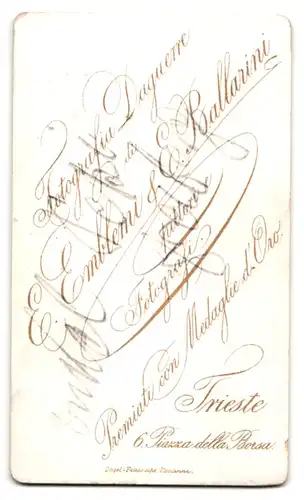 Fotografia Daguerre
di
E. Emblemi & E. Ballarini
Pittori
Fotografi.
Premiati con Medaglie d'Oro.
Trieste
6, Piazza della Borsa.